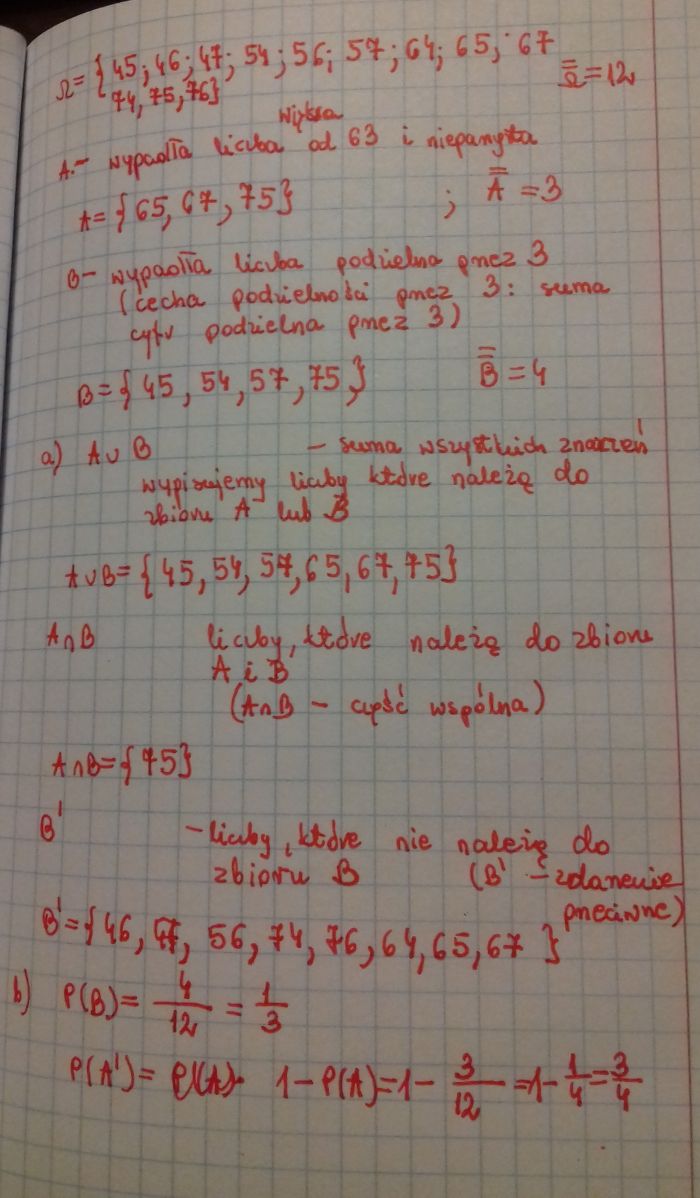 Ω = { 45; 46; 47; 54; 56; 57; 64; 65, 67
74, 75, 76} Ω̿ = 12
większa
A - wypadła liczba od 63 i nieparzysta
A = { 65, 67, 75} ; A̿ = 3
B - wypadła liczba podzielna przez 3
(cecha podzielności przez 3: suma
cyfr podzielna przez 3)
B = { 45, 54, 57, 75, } B̿ = 4
a) A ∪ B - suma wszystkich znaczeń
wypisujemy liczby które należą do
zbioru A lub B
A ∪ B = { 45, 54, 57, 65, 67, 75}
A ∩ B liczby, które należą do zbioru
A i B
(A ∩ B - część wspólna)
A ∩ B = { 75}
B' - liczby, które nie należą do
zbioru B (B' - zdarzenie
przeciwne)
B' = { 46, 47, 56, 74, 76, 64, 65, 67 }
b) P(B) = 4/12 = 1/3
P(A') = 1 - P(A) = 1 - 3/12 = 1 - 1/4 = 3/4